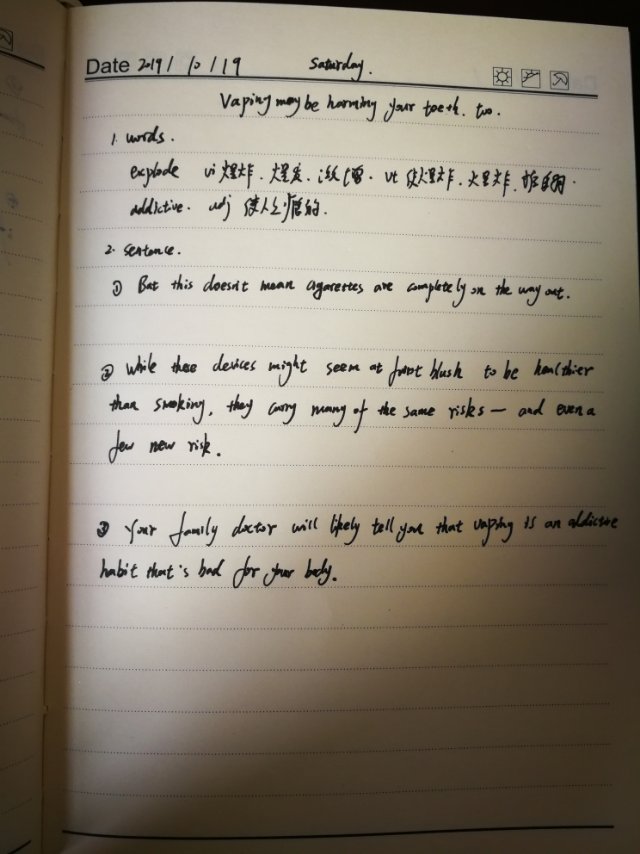 Date 2019 / 10 / 19 Saturday.
Vaping may be harming your teeth, too.
1. words.
explode vi 爆炸、爆发、激增. vt 使爆炸、爆炸、推翻.
addictive. adj 使人上瘾的.
2. sentence.
① But this doesn't mean cigarettes are completely on the way out.
② While these devices might seem at first blush to be healthier
than smoking, they carry many of the same risks — and even a
few new risk.
③ Your family doctor will likely tell you that vaping is an addictive
habit that's bad for your body.